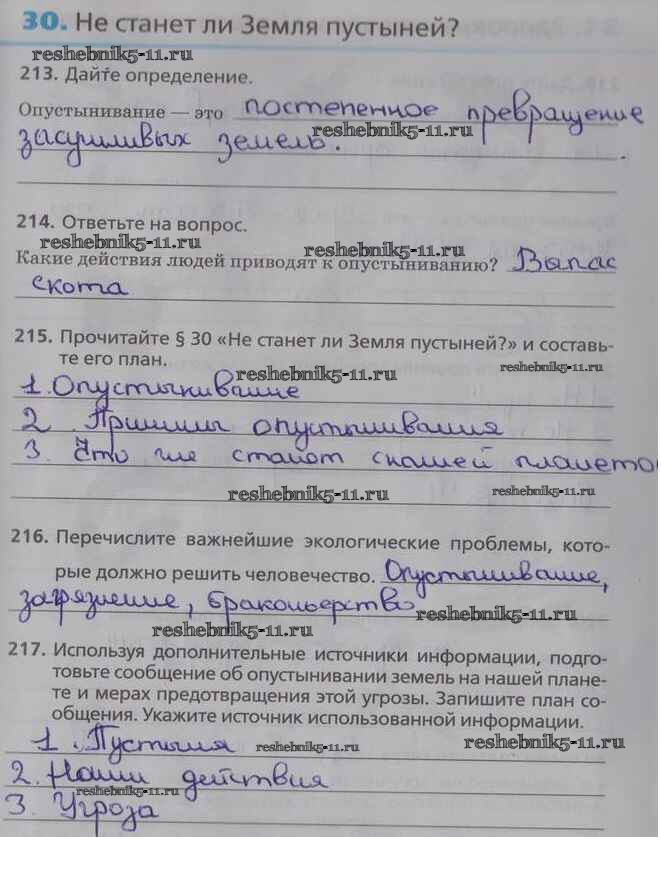 30. Не станет ли Земля пустыней?
reshebnik5-11.ru
213. Дайте определение.
Опустынивание — это постепенное превращение
reshebnik5-11.ru
засушливых земель.
214. Ответьте на вопрос.
reshebnik5-11.ru reshebnik5-11.ru
Какие действия людей приводят к опустыниванию? Выпас
скота
215. Прочитайте § 30 «Не станет ли Земля пустыней?» и составь-
те его план.
reshebnik5-11.ru reshebnik5-11.ru
1. Опустынивание
2. Причины опустынивания
3. Что же станет с нашей планетой
reshebnik5-11.ru reshebnik5-11.ru
216. Перечислите важнейшие экологические проблемы, кото-
рые должно решить человечество. Опустынивание,
загрязнение, браконьерство
reshebnik5-11.ru
reshebnik5-11.ru
217. Используя дополнительные источники информации, подго-
товьте сообщение об опустынивании земель на нашей плане-
те и мерах предотвращения этой угрозы. Запишите план со-
общения. Укажите источник использованной информации.
1. Пустыня reshebnik5-11.ru reshebnik5-11.ru
2. Наши действия
reshebnik5-11.ru
3. Угроза